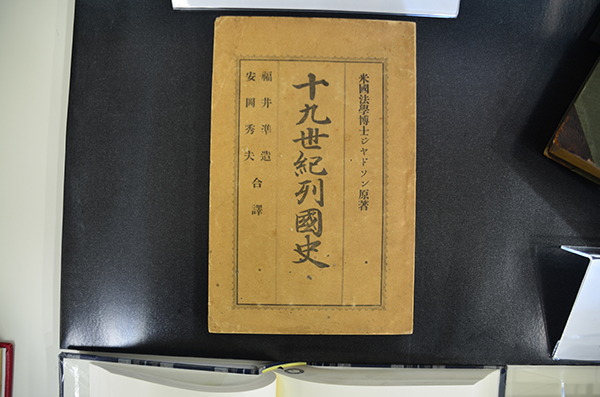 米國法學博士ジヤドソン原著
十九世紀列國史
福井準造
安岡秀夫
合譯